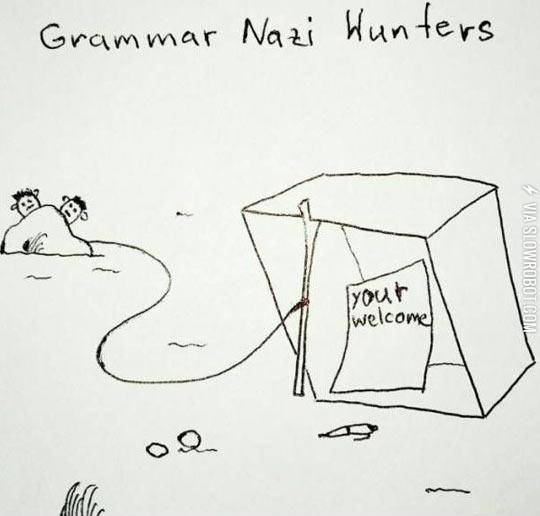 Grammar Nazi Hunters
your
welcome
VIA SLOWROBOT.COM